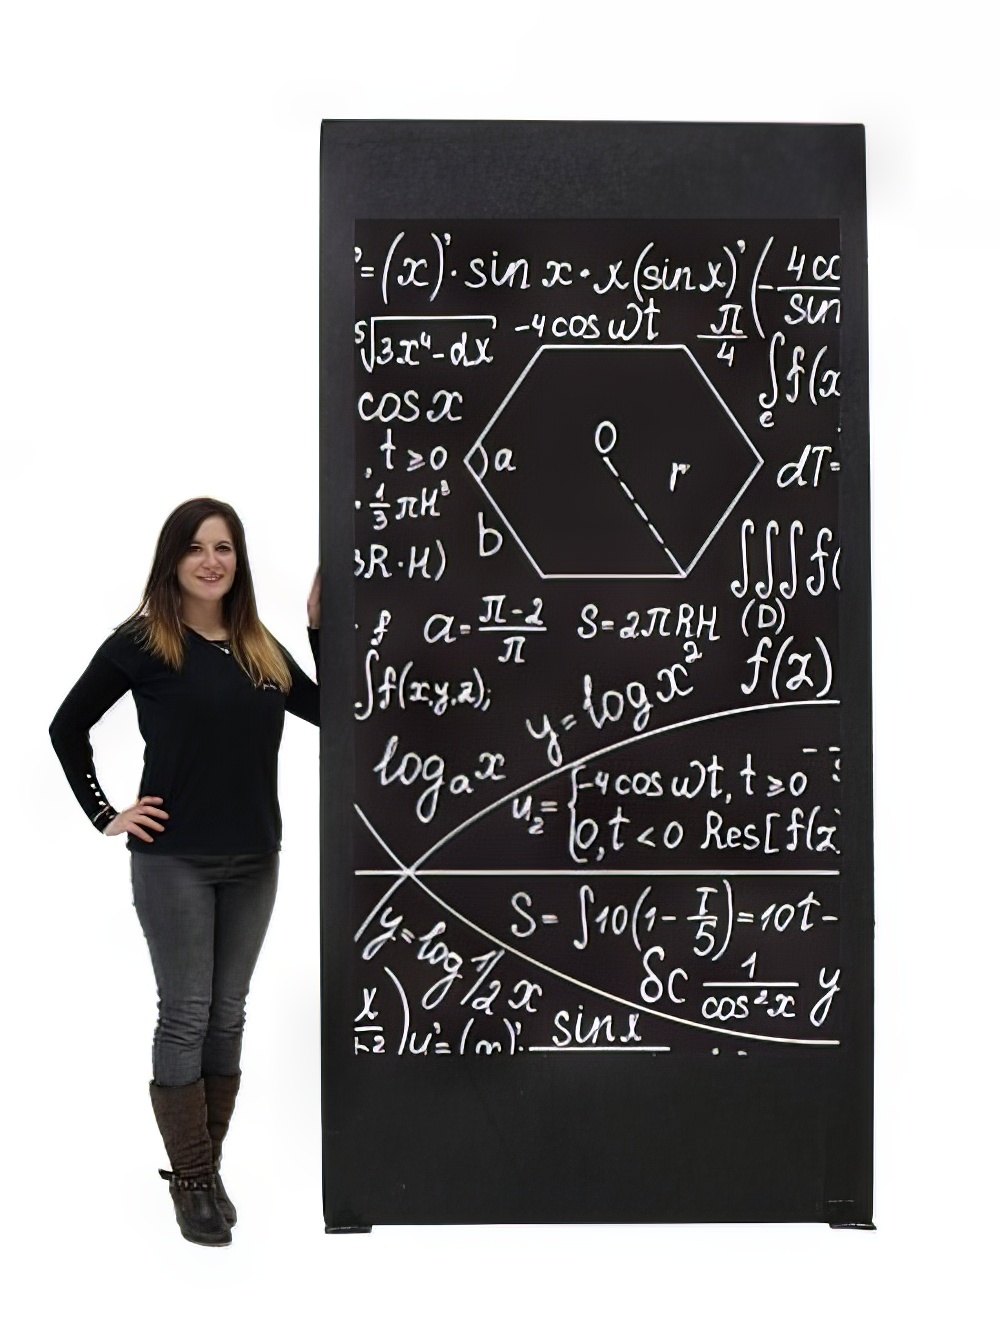 '=(x)'·sin x·x(sin x)'(-4co/sin
⁵√3x⁴-dx -4cos ωt π/4
∫f(x
e
cos x
,t≥0 a O r dT=
·1/3πH³
b
3R·H) ∫∫∫f(
(D)
·f a=π-2/π S=2πRH
∫f(x,y,z); y=log x² f(z)
logₐx
u₂={-4cos ωt, t≥0
0,t<0 Res[f(z
S=∫10(1-T/5)=10t-
y=log 1/2 x δc 1/cos²x y
x/h2)u'=(m)'·sin x